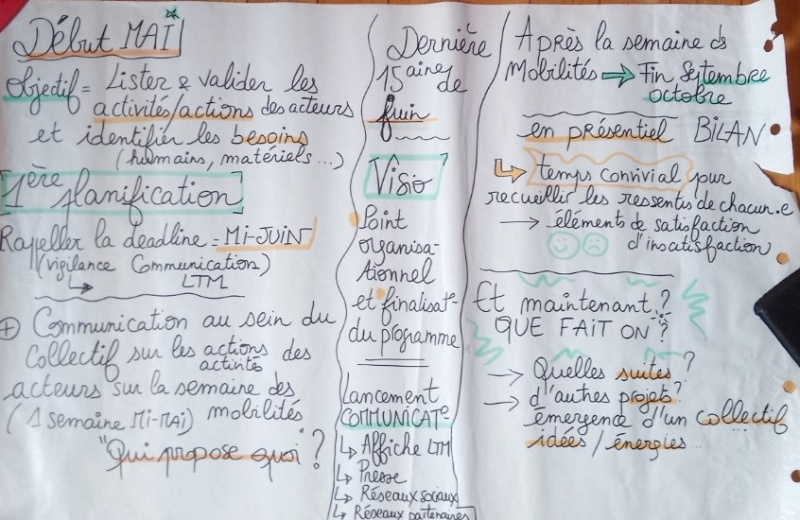 Début MAI
Objectif = Lister & valider les
activités/actions des acteurs
et identifier les besoins
(humains, matériels...)
1ère planification
Rappeller la deadline = MI-JUIN
(vigilance Communication)
↳ LTM
⊕ Communication au sein du
Collectif sur les actions des
activité
acteurs sur la semaine des
(1 semaine MI-MAI) mobilités
"Qui propose quoi"?
Dernière
15aine de
juin
Visio
Point
organisa-
tionnel
et finalisat°
du programme
Lancement
COMMUNICAT°
↳ Affiche LTM
↳ Presse
↳ Réseaux sociaux
↳ Réseaux partenaires
Après la semaine ds
Mobilités ⇒ Fin Septembre
octobre
en présentiel BILAN
↳ temps convivial pour
recueillir les ressentis de chacun.e
→ éléments de satisfaction
d'insatisfaction
Et maintenant?
QUE FAIT ON?
→ Quelles suites?
→ d'autres projets?
émergence d'un collectif
idées / énergies...